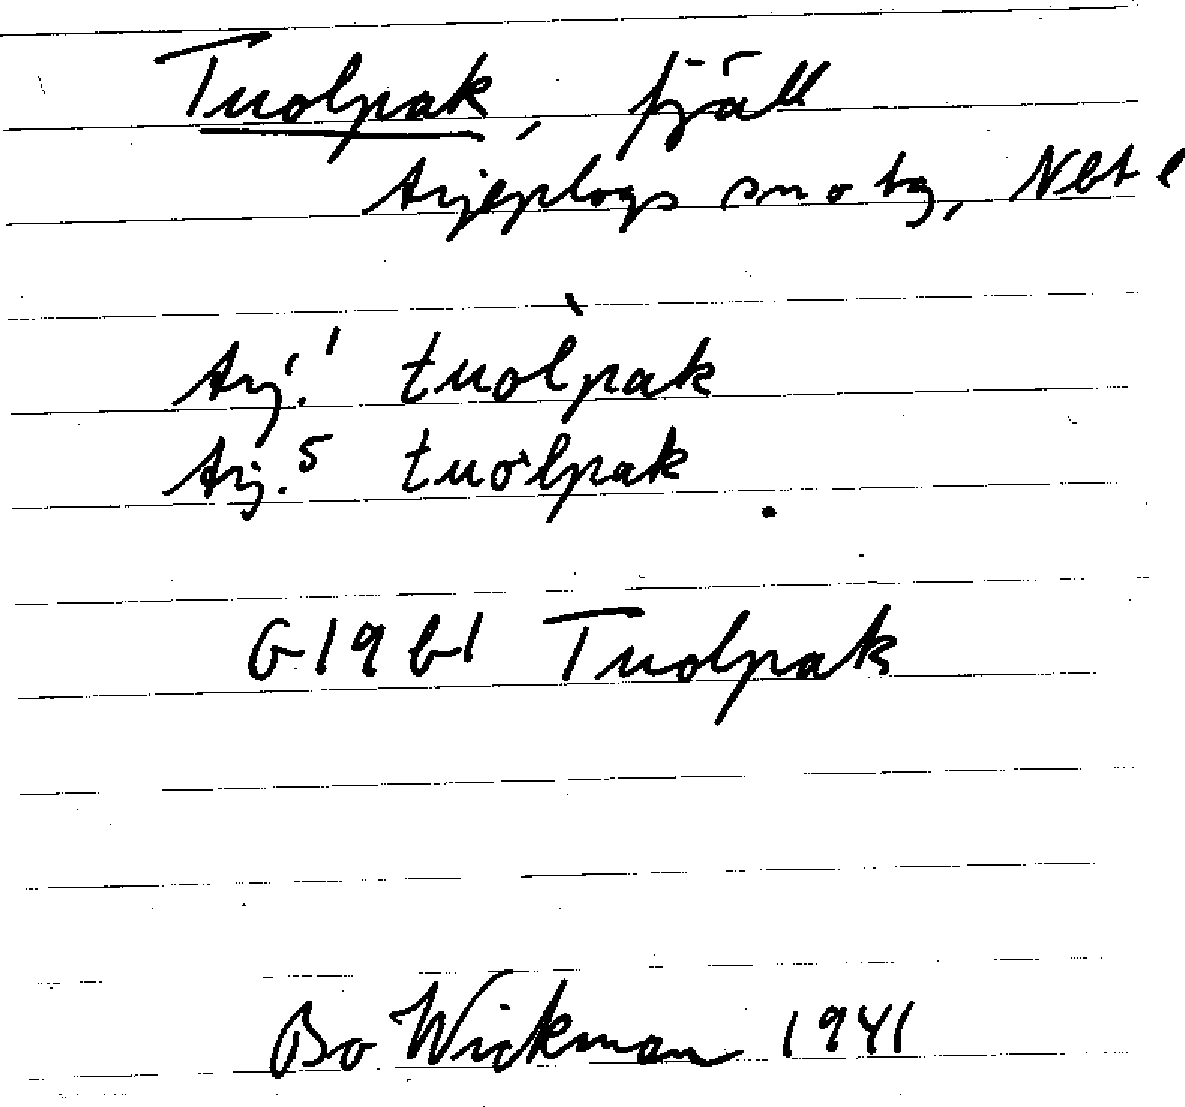 Tuolpak, fjäll
Arjeplogs sn o tg, Nbt l
Arj.¹ tuolpak
Arj.⁵ tuolpak
G 19 b1 Tuolpak
Bo Wickman 1941